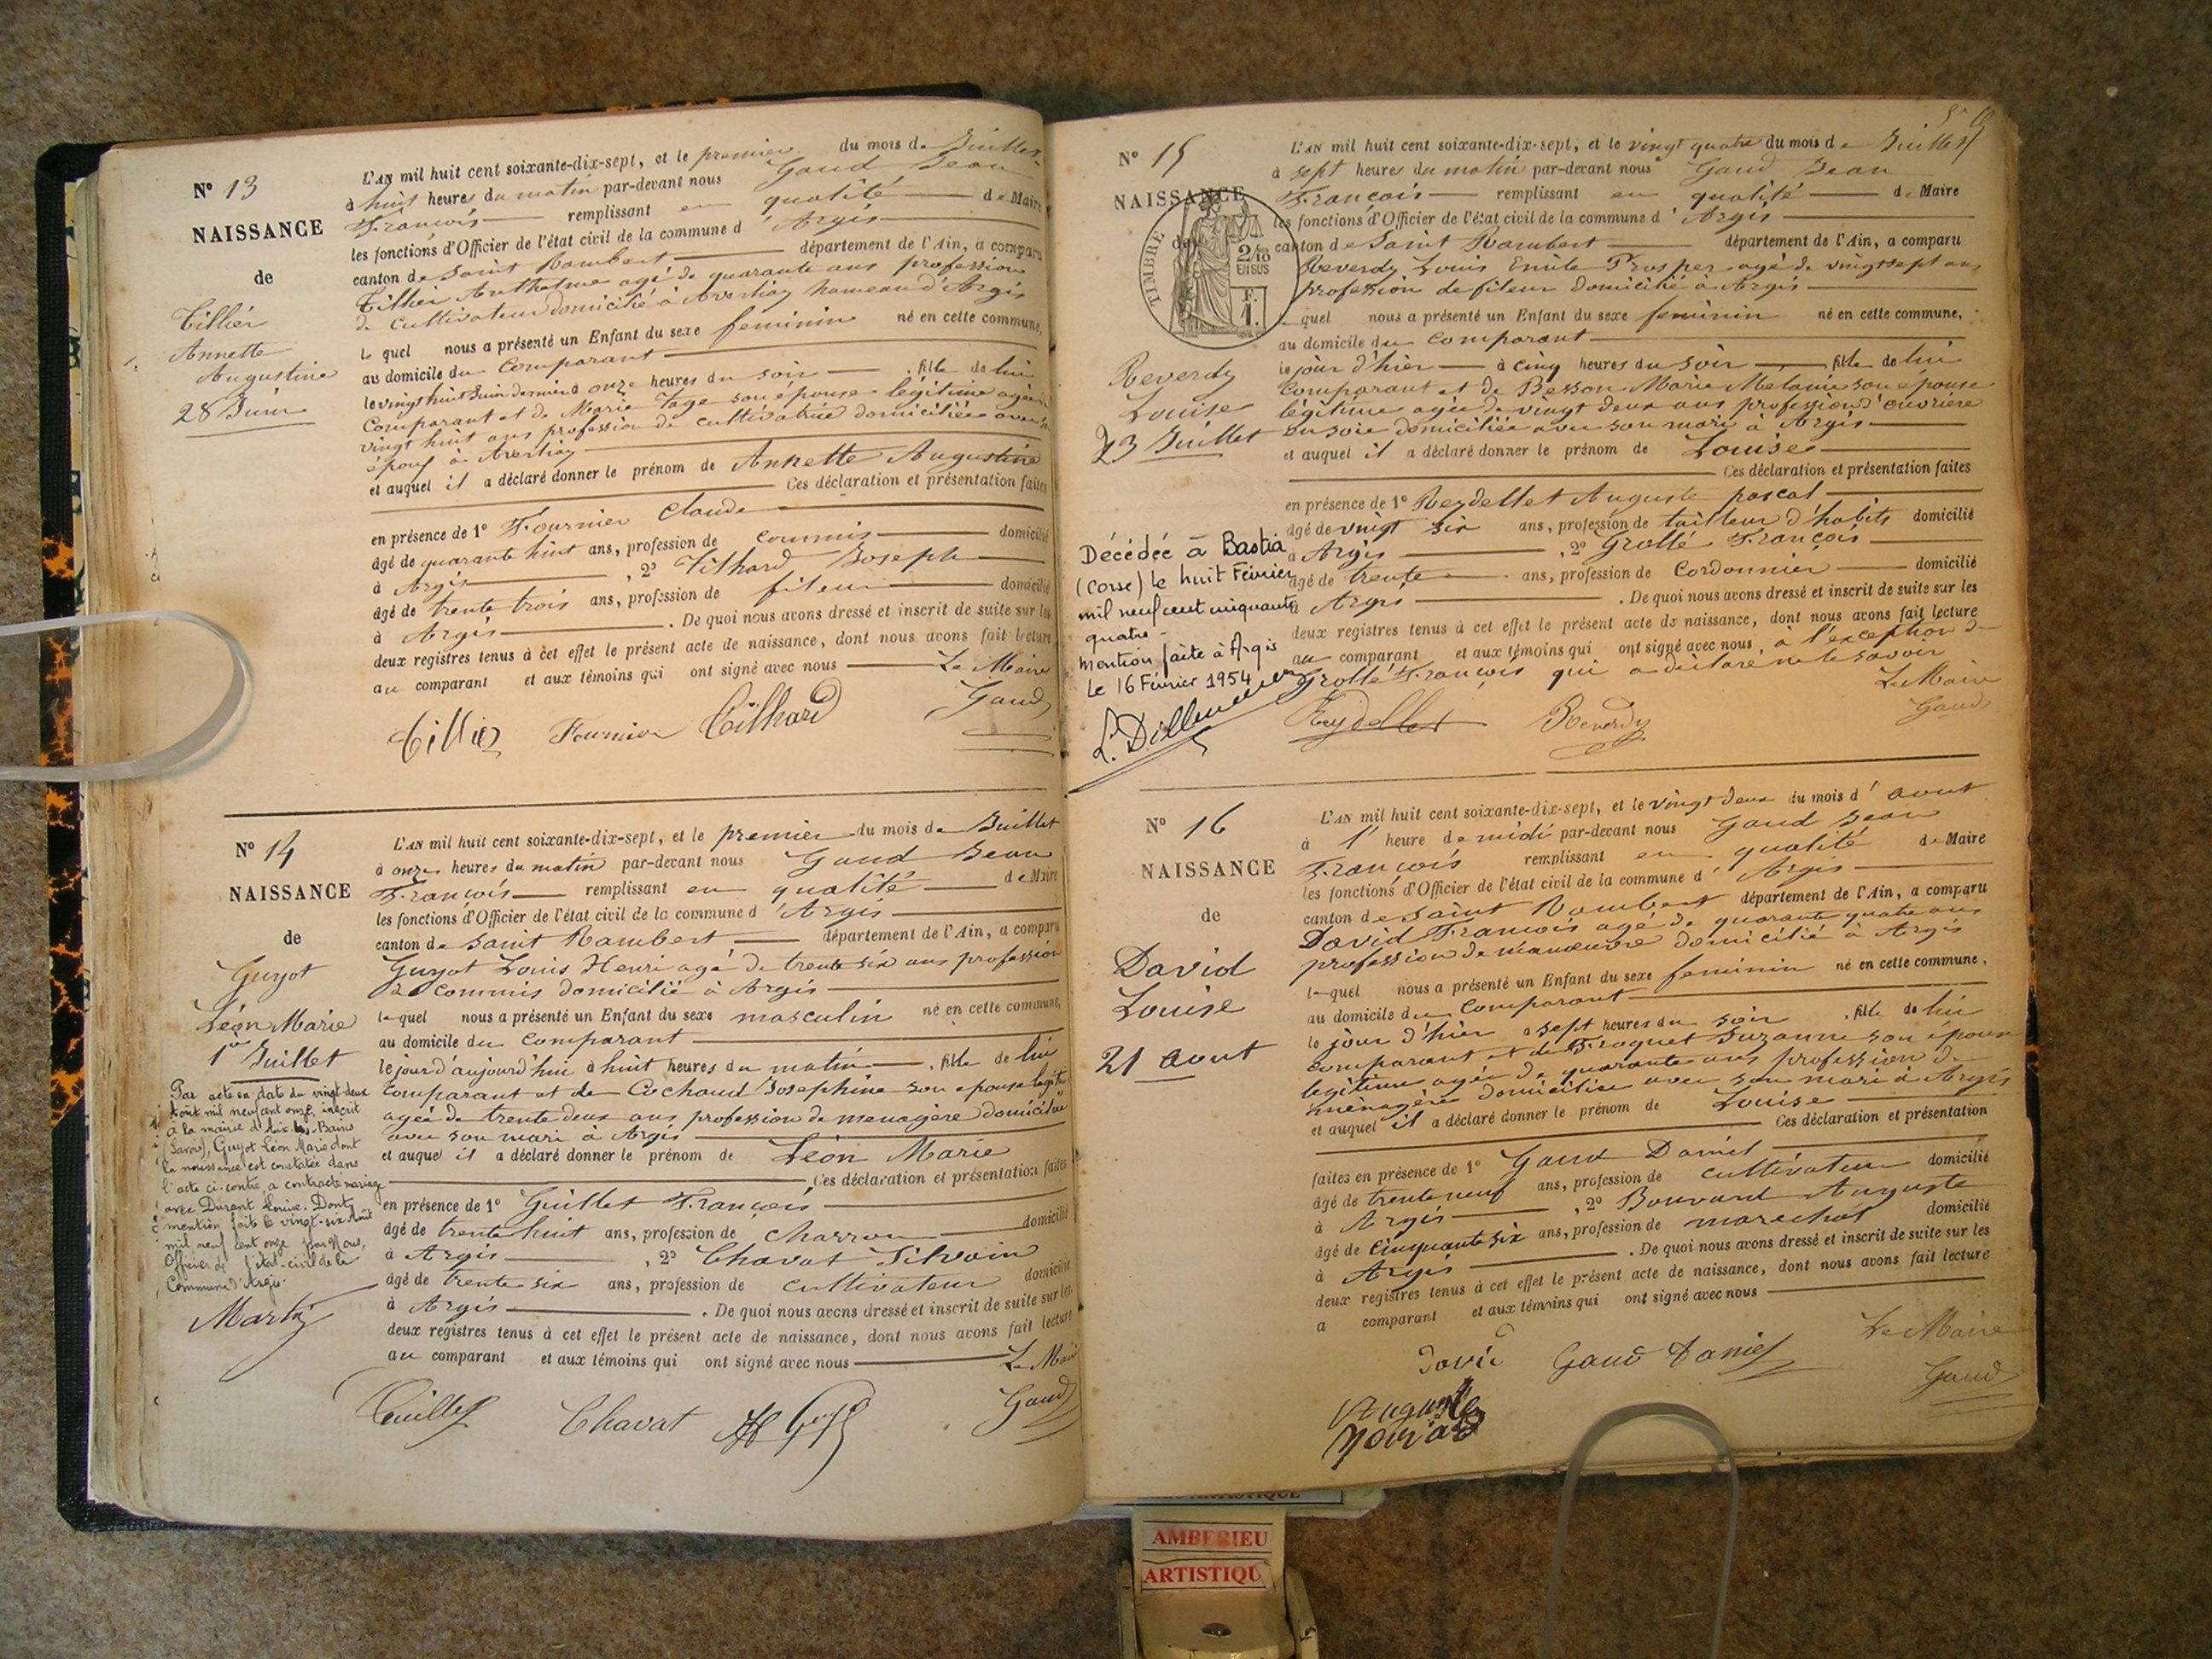 N° 13
NAISSANCE
de
Tillier
Annette
Augustine
28 Juin
L'AN mil huit cent soixante-dix-sept, et le premier du mois de Juillet
à huit heures du matin par-devant nous Gaud Jean
François remplissant en qualité de Maire
les fonctions d'Officier de l'état civil de la commune d'Argis
canton de Saint Rambert département de l'Ain, a comparu
Tillier Anthelme agé de quarante ans profession
de cultivateur domicilié à Averliaz hameau d'Argis
lequel nous a présenté un Enfant du sexe feminin né en cette commune,
au domicile du Comparant
le vingt huit Juin dernier à onze heures du soir fille de lui
Comparant et de Marie Tage son épouse légitime agée de
vingt huit ans profession de cultivatrice domiciliée avec son
époux à Averliaz
et auquel il a déclaré donner le prénom de Annette Augustine
Ces déclaration et présentation faites
en présence de 1° Fournier Claude
âgé de quarante huit ans, profession de commis domicilié
à Argis, 2° Tilhard Joseph
âgé de trente trois ans, profession de fileur domicilié
à Argis. De quoi nous avons dressé et inscrit de suite sur les
deux registres tenus à cet effet le présent acte de naissance, dont nous avons fait lecture
au comparant et aux témoins qui ont signé avec nous Le Maire
Tillier Fournier Tilhard Gaud
N° 14
NAISSANCE
de
Guyot
Léon Marie
1er Juillet
Par acte en date du vingt-deux
Août mil neuf cent onze, inscrit
à la mairie d'Aix-les-Bains
(Savoie), Guyot Léon Marie dont
la naissance est constatée dans
l'acte ci-contre, a contracté mariage
avec Durant Louise. Dont
mention faite le vingt-six Août
mil neuf cent onze par Nous,
Officier de l'état-civil de la
Commune d'Argis.
L'AN mil huit cent soixante-dix-sept, et le premier du mois de Juillet
à onze heures du matin par-devant nous Gaud Jean
François remplissant en qualité de Maire
les fonctions d'Officier de l'état civil de la commune d'Argis
canton de Saint Rambert département de l'Ain, a comparu
Guyot Louis Henri agé de trente six ans profession
de commis domicilié à Argis
lequel nous a présenté un Enfant du sexe masculin né en cette commune,
au domicile du Comparant
le jour d'aujourd'hui à huit heures du matin fils de lui
Comparant et de Cochaud Josephine son epouse légitime
agée de trente deux ans profession de menagère domiciliée
avec son mari à Argis
et auquel il a déclaré donner le prénom de Léon Marie
Ces déclaration et présentation faites
en présence de 1° Guillet François
âgé de trente huit ans, profession de charron domicilié
à Argis, 2° Chavat Silvain
âgé de trente six ans, profession de cultivateur domicilié
à Argis. De quoi nous avons dressé et inscrit de suite sur les
deux registres tenus à cet effet le présent acte de naissance, dont nous avons fait lecture
au comparant et aux témoins qui ont signé avec nous Le Maire
Guillet Chavat Gaud
N° 15
NAISSANCE
de
TIMBRE
2/10
EN SUS
F.
1.
Reverdy
Louise
23 Juillet
Décédée à Bastia
(Corse) le huit Février
mil neuf cent cinquante
quatre -
mention faite à Argis
le 16 Février 1954
L'AN mil huit cent soixante-dix-sept, et le vingt quatre du mois de Juillet
à sept heures du matin par-devant nous Gaud Jean
François remplissant en qualité de Maire
les fonctions d'Officier de l'état civil de la commune d'Argis
canton de Saint Rambert département de l'Ain, a comparu
Reverdy Louis Emile Prosper agé de vingt sept ans
profession de fileur domicilié à Argis
lequel nous a présenté un Enfant du sexe feminin né en cette commune,
au domicile du Comparant
le jour d'hier à cinq heures du soir fille de lui
Comparant et de Besson Marie Melanie son épouse
légitime agée de vingt deux ans profession d'ouvrière
en soie domiciliée avec son mari à Argis
et auquel il a déclaré donner le prénom de Louise
Ces déclaration et présentation faites
en présence de 1° Reydellet Auguste pascal
âgé de vingt six ans, profession de tailleur d'habits domicilié
à Argis, 2° Grollé François
âgé de trente ans, profession de Cordonnier domicilié
à Argis. De quoi nous avons dressé et inscrit de suite sur les
deux registres tenus à cet effet le présent acte de naissance, dont nous avons fait lecture
au comparant et aux témoins qui ont signé avec nous, à l'exception de
Grollé François qui a déclaré ne le savoir
Le Maire
Reydellet Reverdy Gaud
N° 16
NAISSANCE
de
David
Louise
21 Aout
L'AN mil huit cent soixante-dix-sept, et le vingt deux du mois d'aout
à 1 heure de midi par-devant nous Gaud Jean
François remplissant en qualité de Maire
les fonctions d'Officier de l'état civil de la commune d'Argis
canton de Saint Rambert département de l'Ain, a comparu
David François agé de quarante quatre ans
profession de manœuvre domicilié à Argis
lequel nous a présenté un Enfant du sexe feminin né en cette commune,
au domicile du Comparant
le jour d'hier à sept heures du soir fille de lui
comparant et de Froquet Suzanne son épouse
légitime agée de quarante ans profession de
ménagère domiciliée avec son mari à Argis
et auquel il a déclaré donner le prénom de Louise
Ces déclaration et présentation
faites en présence de 1° Gaud Daniel
âgé de trente neuf ans, profession de cultivateur domicilié
à Argis, 2° Bouvard Auguste
âgé de Cinquante six ans, profession de marechal domicilié
à Argis. De quoi nous avons dressé et inscrit de suite sur les
deux registres tenus à cet effet le présent acte de naissance, dont nous avons fait lecture
a comparant et aux témoins qui ont signé avec nous
Le Maire
David Gaud Daniel Gaud
Auguste
AMBERIEU
ARTISTIQU